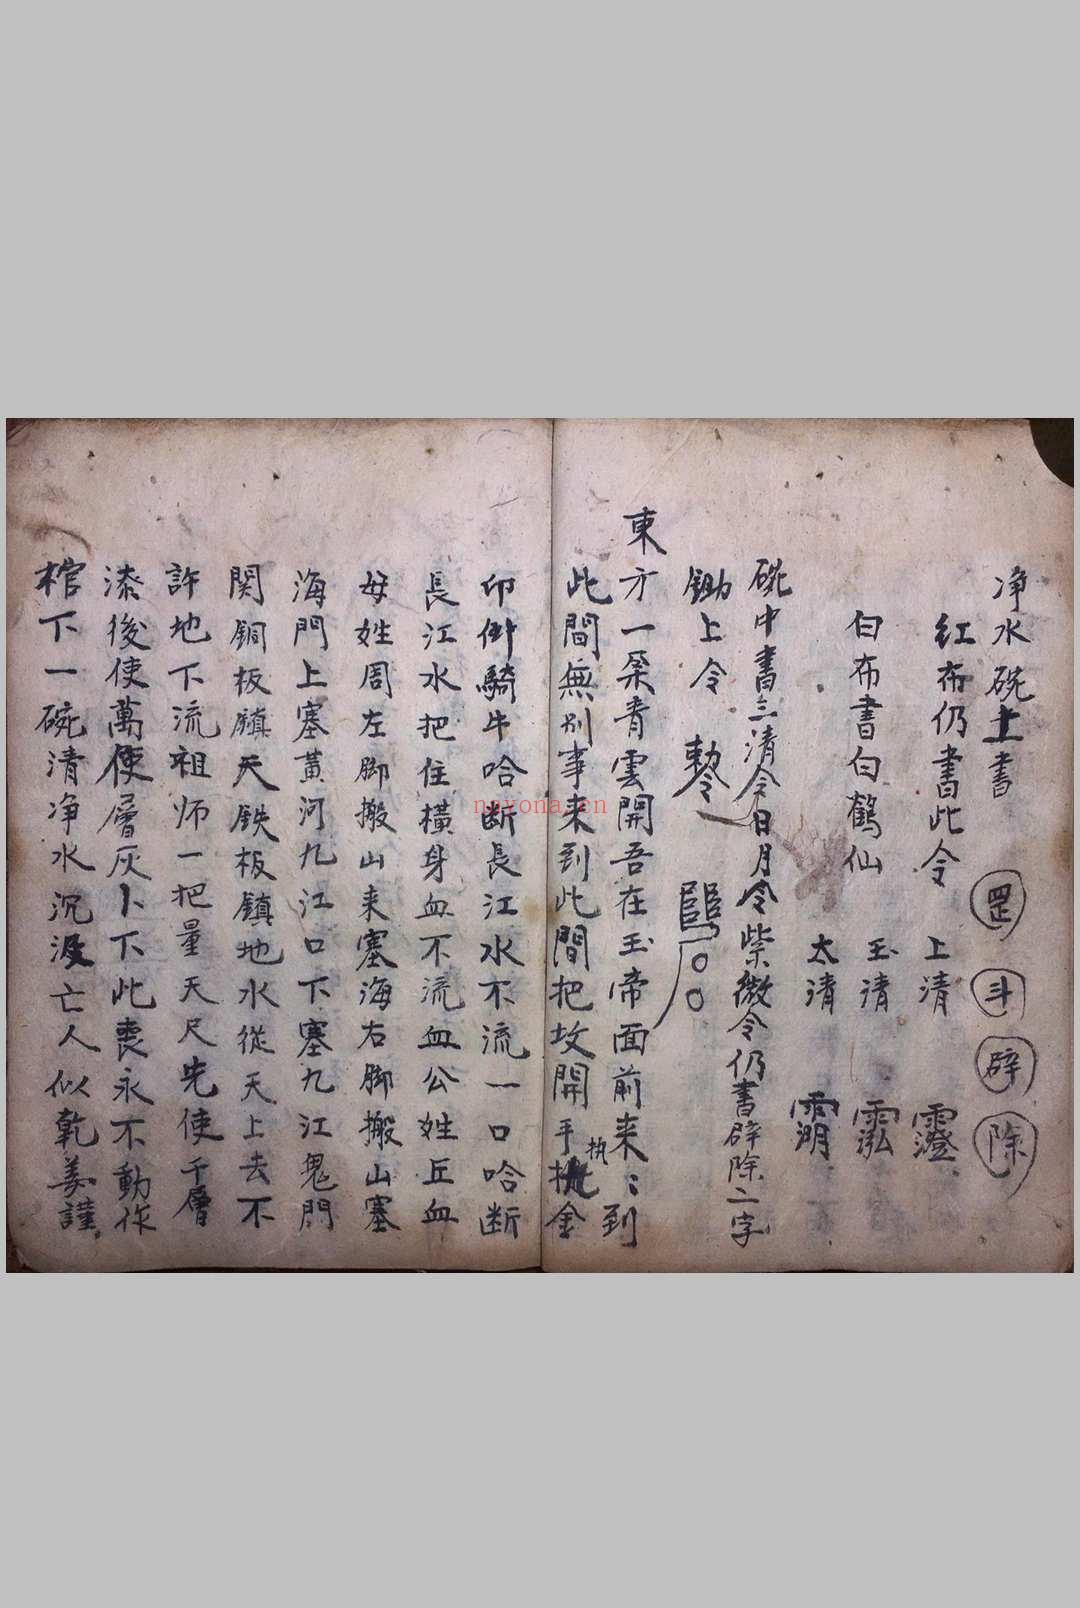 净水碗上書 罡 斗 辟 除
紅布仍書此令 上清
白布書白鶴仙 玉清
太清
碗中書三清令日月令紫微令仍書辟除二字
鋤上令 勅令
東方一朵青雲開吾在玉帝面前来〻到
此間無别事来到此間把坟開手执金
印倒騎牛哈断長江水不流一口哈断
長江水把住横身血不流血公姓丘血
母姓周左脚搬山来塞海右脚搬山塞
海門上塞黄河九江口下塞九江鬼門
関銅板鎮天鉄板鎮地水從天上去不
許地下流祖师一把量天尺先使千層
漆後使萬使層灰卜下此喪永不動作
棺下一碗清净水沉没亡人似乾姜謹
nayona.cn